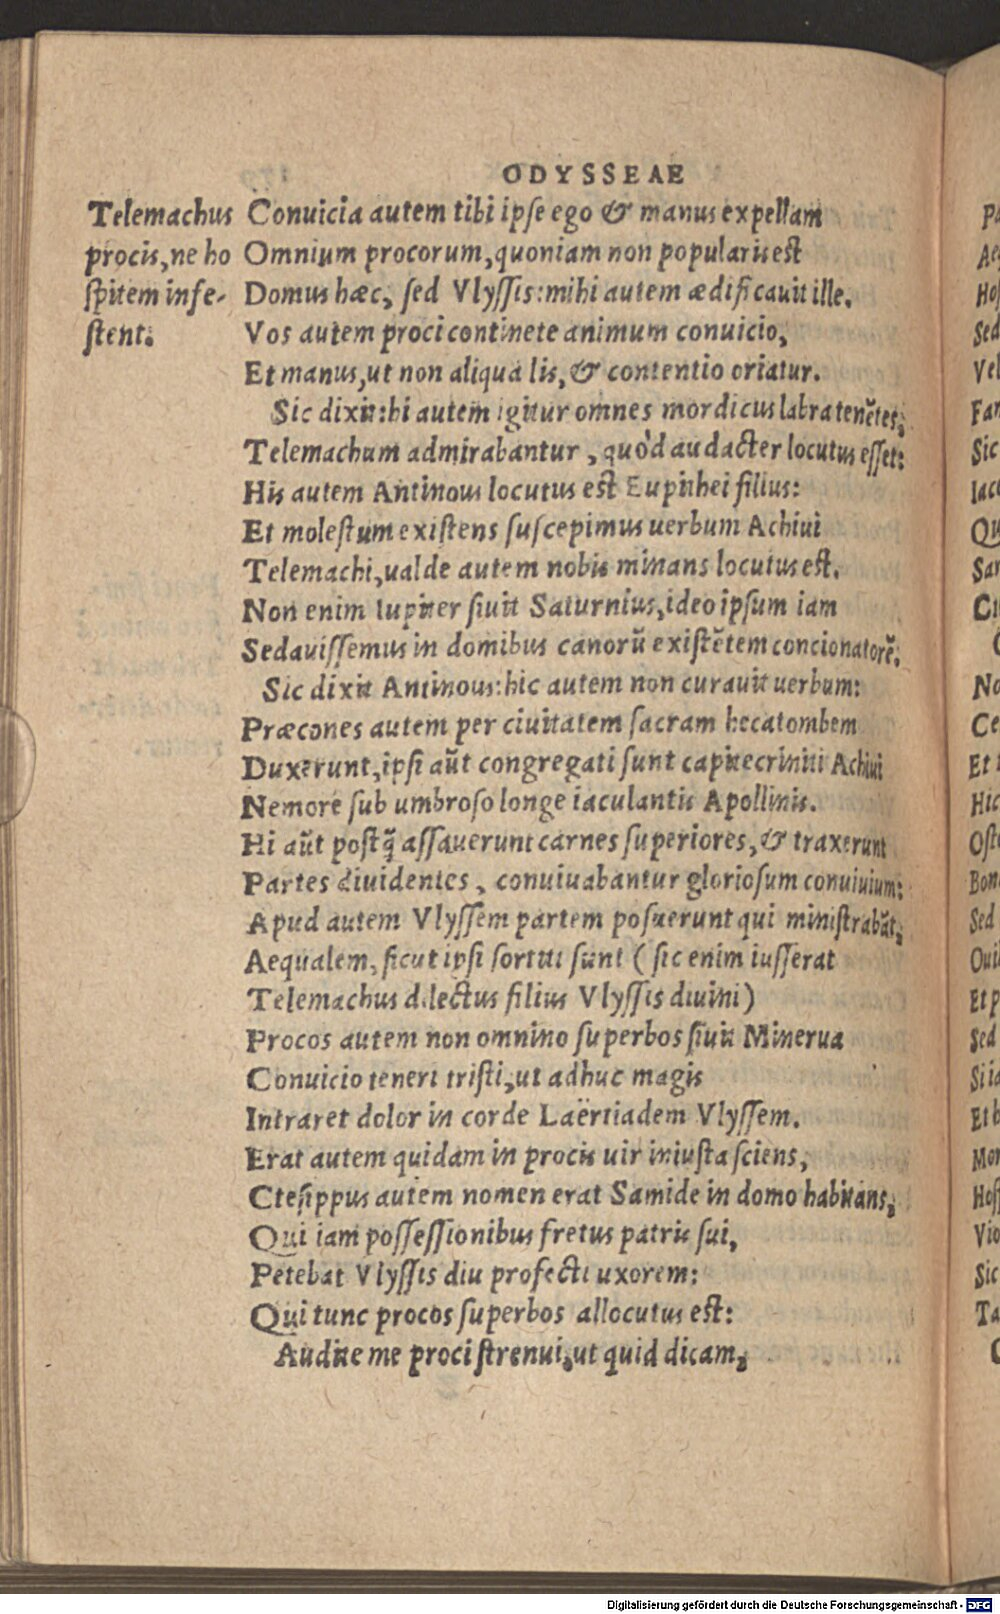 ODYSSEAE
Telemachus
procis, ne ho
spitem infe-
stent.
Conuicia autem tibi ipse ego & manus expellam
Omnium procorum, quoniam non popularis est
Domus hæc, sed Vlyssis: mihi autem ædificauit ille.
Vos autem proci continete animum conuicio,
Et manus, ut non aliqua lis, & contentio oriatur.
Sic dixit: hi autem igitur omnes mordicus labra tenẽtes,
Telemachum admirabantur, quòd audacter locutus esset:
His autem Antinous locutus est Eupithei filius:
Et molestum existens suscepimus uerbum Achiui
Telemachi, ualde autem nobis minans locutus est.
Non enim Iupiter siuit Saturnius, ideo ipsum iam
Sedauissemus in domibus canorũ existẽtem concionatorẽ.
Sic dixit Antinous: hic autem non curauit uerbum:
Præcones autem per ciuitatem sacram hecatombem
Duxerunt, ipsi aũt congregati sunt capite criniti Achiui
Nemore sub umbroso longe iaculantis Apollinis.
Hi aũt postq̃ assauerunt carnes superiores, & traxerunt
Partes diuidentes, conuiuabantur gloriosum conuiuium:
Apud autem Vlyssem partem posuerunt qui ministrabãt,
Aequalem, sicut ipsi sortiti sunt (sic enim iusserat
Telemachus dilectus filius Vlyssis diuini)
Procos autem non omnino superbos siuit Minerua
Conuicio teneri tristi, ut adhuc magis
Intraret dolor in corde Laërtiadem Vlyssem.
Erat autem quidam in procis uir iniusta sciens,
Ctesippus autem nomen erat Samide in domo habitans,
Qui iam possessionibus fretus patris sui,
Petebat Vlyssis diu profecti uxorem:
Qui tunc procos superbos allocutus est:
Audite me proci strenui, ut quid dicam,
Digitalisierung gefördert durch die Deutsche Forschungsgemeinschaft - DFG